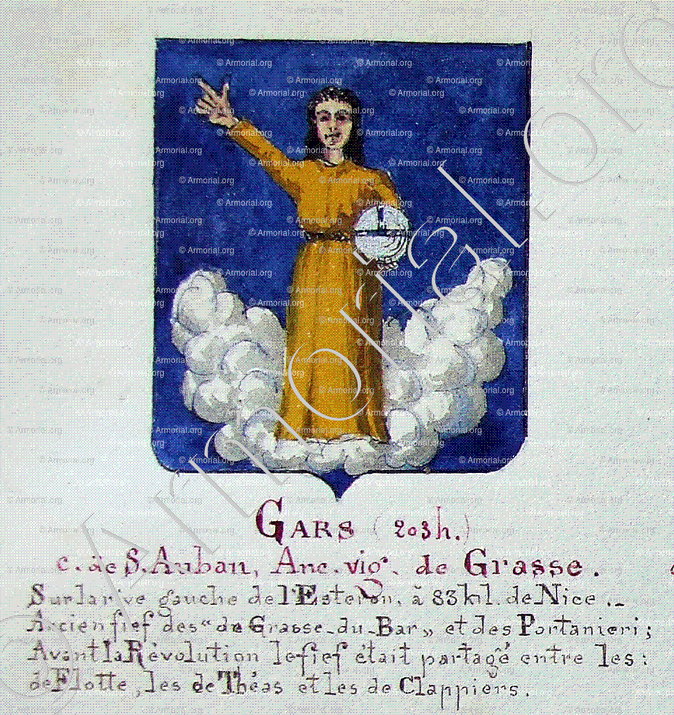 GARS (203h.)
c. de S. Auban, Anc. vigie. de Grasse.
Sur la rive gauche de l'Esteron, à 83 kil. de Nice._
Ancien fief des "de Grasse-du-Bar" et des Portanieri;
Avant la Révolution le fief était partagé entre les:
de Flotte, les de Théas et les de Clappiers.
© Armorial.org
Armorial.org